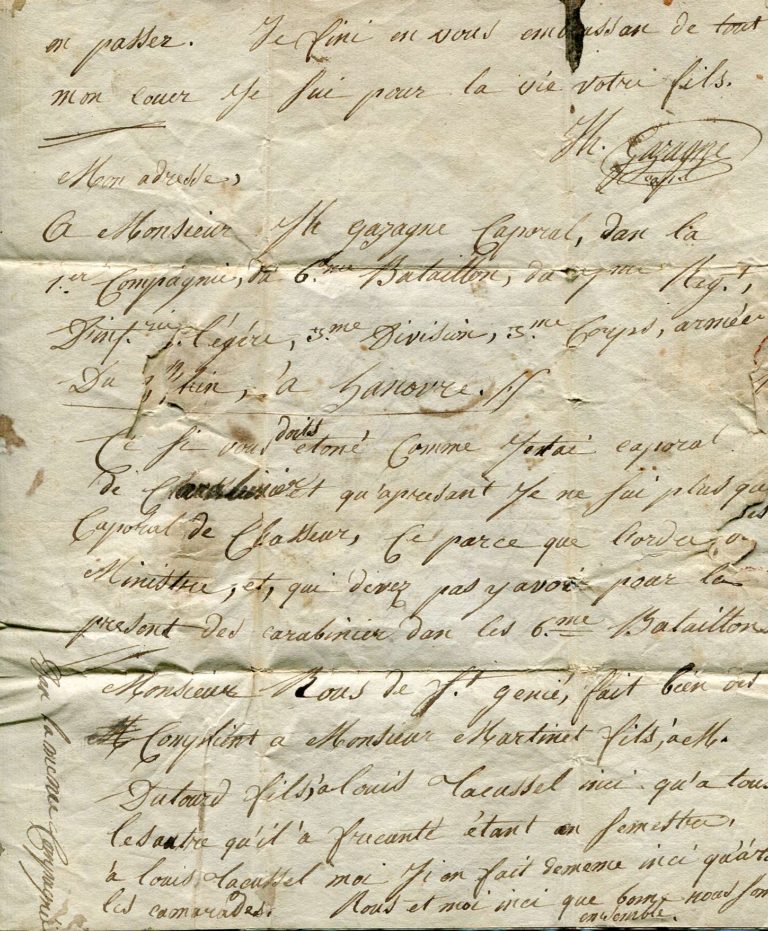 en passer. Je fini en vous embrassan de tout
mon couer Je sui pour la vie votre fils.
Jh. Gazagne
Mon adresse,
A Monsieur Jh gazagne Caporal, dan la
1.er Compagnie, du 6.me Bataillon, du 7me Reg.t,
D'inf.rie légére, 3.me Division, 3.me Corps, armée
Du Rhin, à hanovre.
Ce si vous doits etoné Comme Jetai caporal
de Carabinier et qu'apresant Je ne sui plus que
Caporal de Chasseur, Ce parce que lordre
Ministre, et, qui devez pas y avoir pour la
present des carabinier dan les 6.me Bataillons
Monsieur Rous de St genié, fait bien des
Compliment a Monsieur Martinet fils, a M.
Dutourd fils, a louis Lacassel inci qu'a tous
les autre qu'il à frecanté étant en semestre,
à louis Lacassel moi J'en fait dememe inci qu'à
les camarades. Rous et moi inci que bome nous som
ensemble.
Den la meme Compagnie